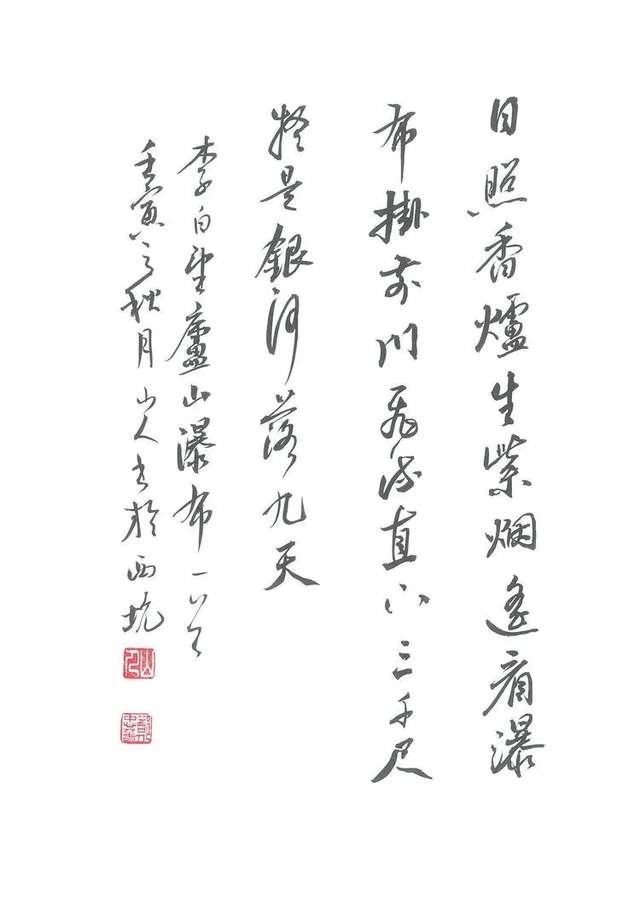 日照香爐生紫烟遙看瀑
布掛前川飛流直下三千尺
疑是銀河落九天
李白望廬山瀑布一首
壬寅之秋月山人書於西坑
山人